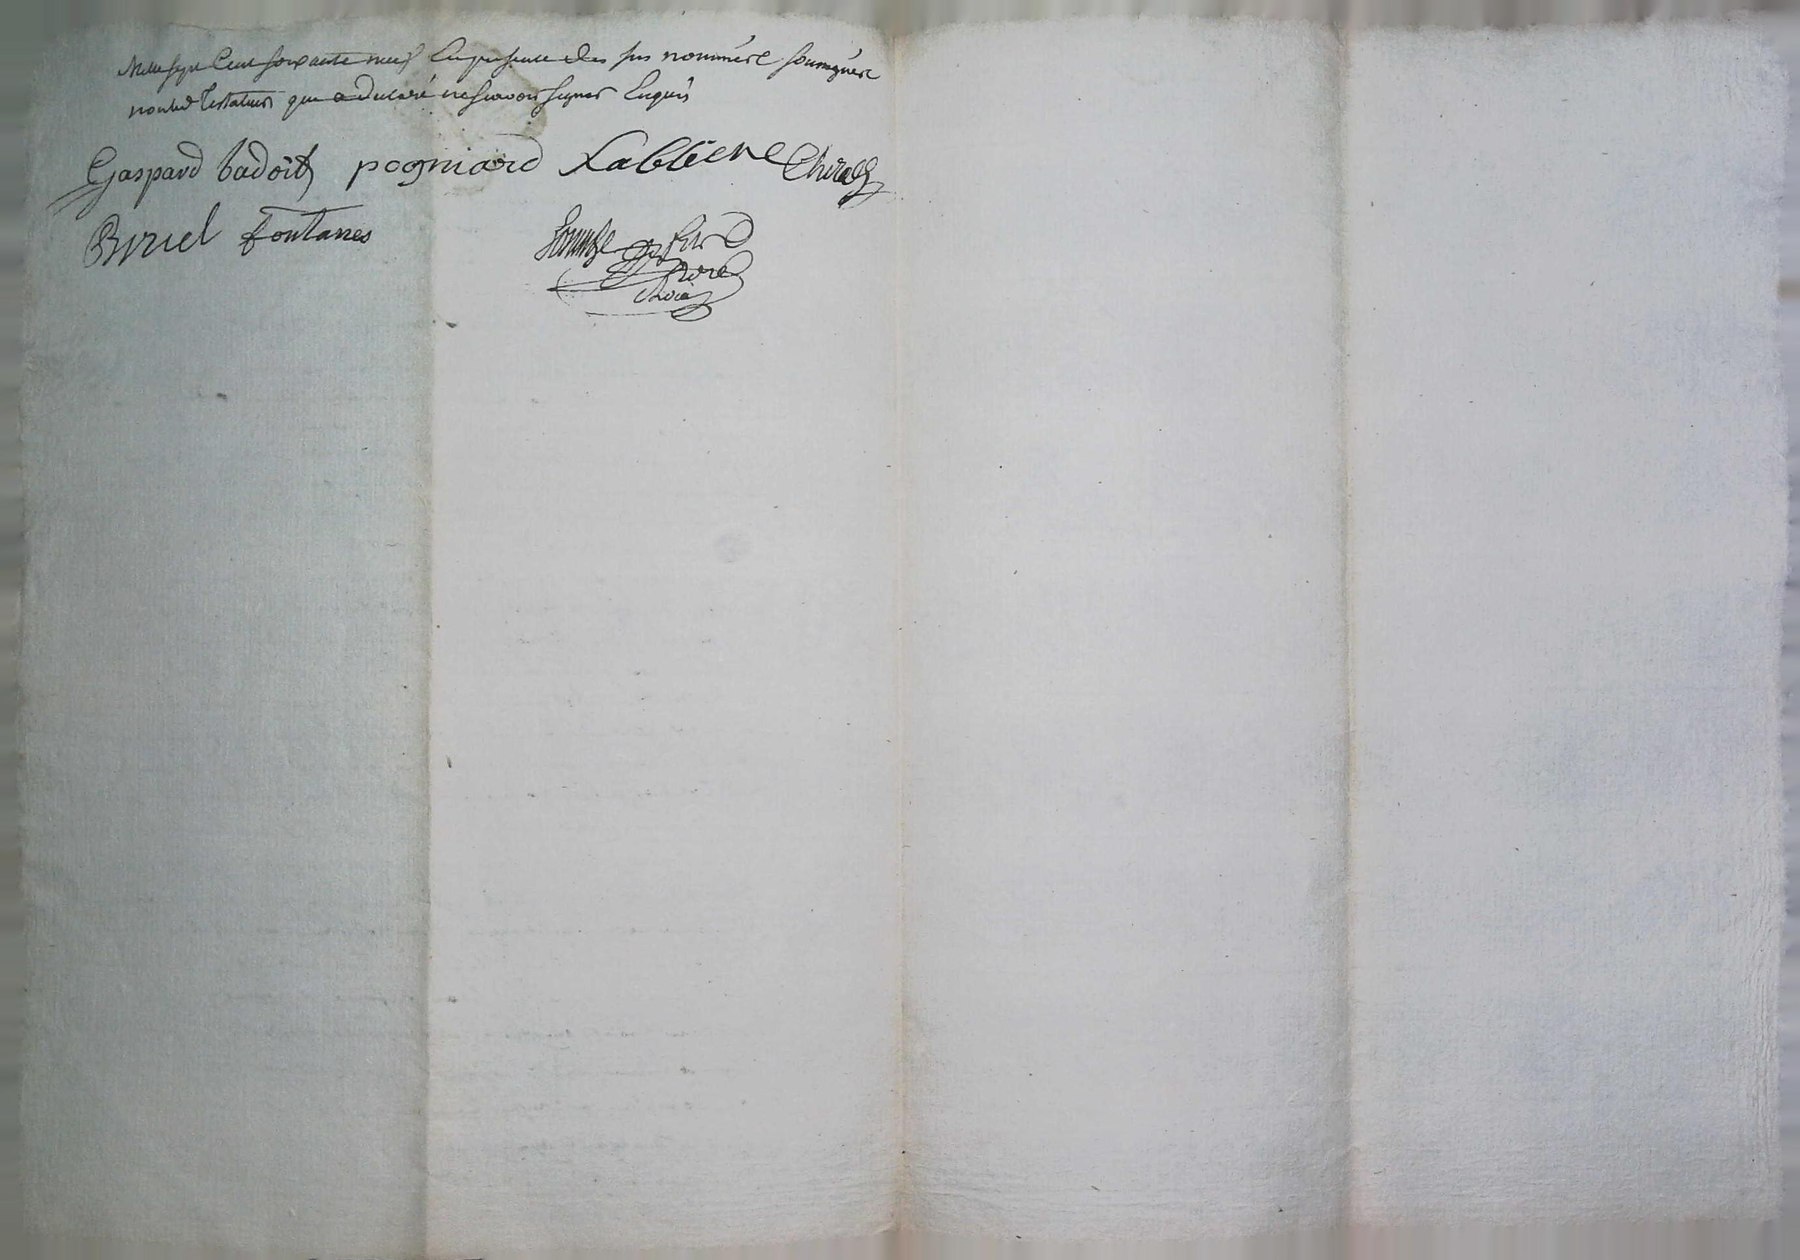 Mille sept Cent soixante neuf En presence des sus nommés soussignés
non led. Testateur que a declaré ne scavoir signer Enquis
Gaspard badoit pogniard Lablierre Chirat
Buriel fontanes